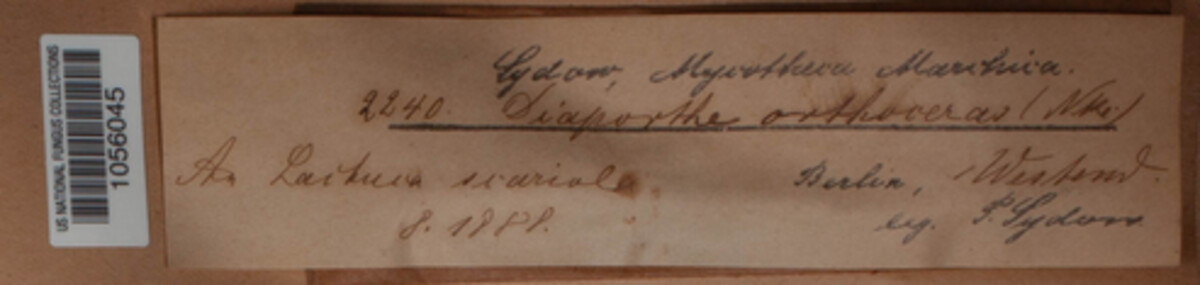 US NATIONAL FUNGUS COLLECTIONS
1056045
Sydow, Mycotheca Marchica.
2240. Diaporthe orthoceras (Nke.)
An Lactuca scariola. Berlin, Westend.
8. 1888. leg. P. Sydow